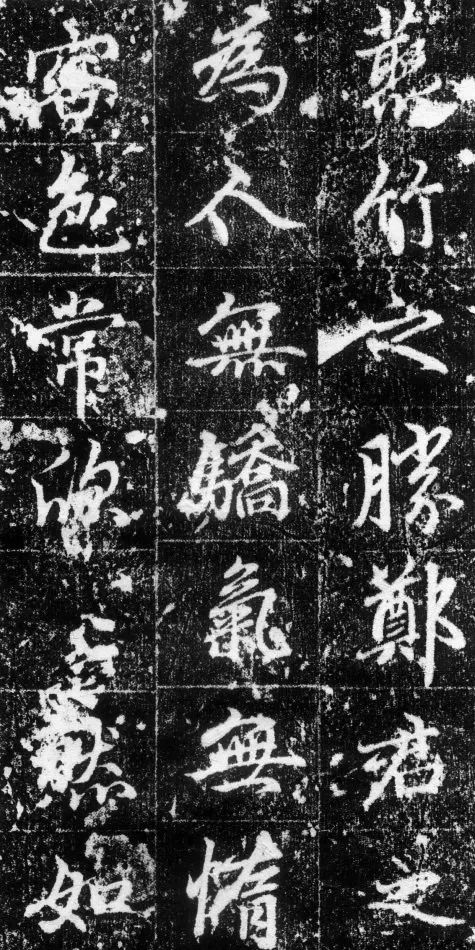 竹之勝鄭君之
為人無驕氣無惰
容色常然如